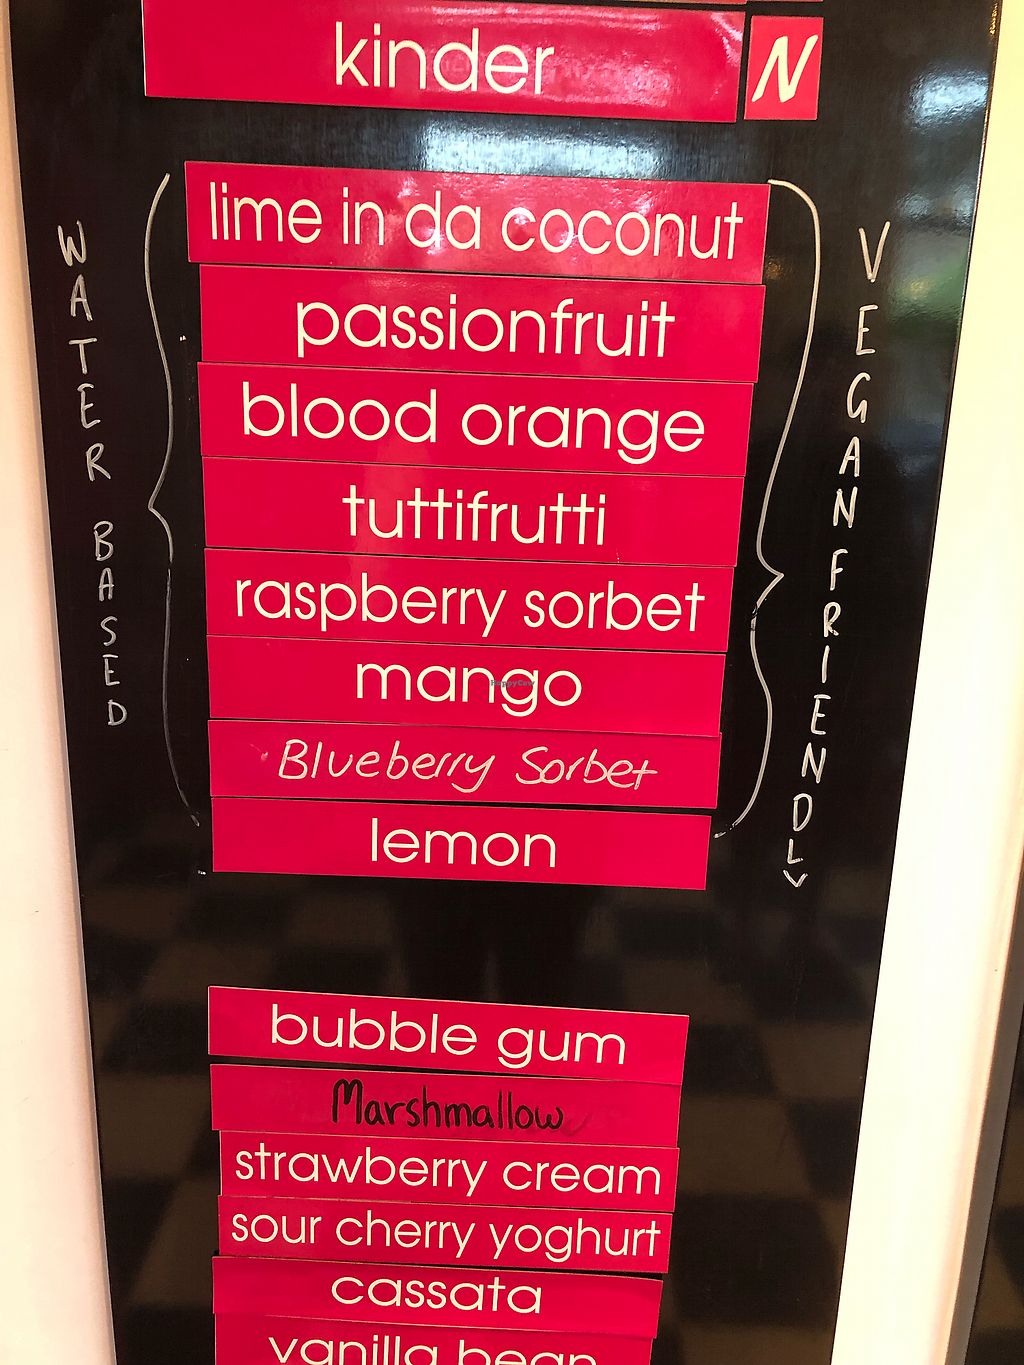 kinder N
lime in da coconut
passionfruit
blood orange
tuttifrutti
raspberry sorbet
mango
Blueberry Sorbet
lemon
WATER BASED
VEGAN FRIENDLY
bubble gum
Marshmallow
strawberry cream
sour cherry yoghurt
cassata
vanilla bean
HappyCow